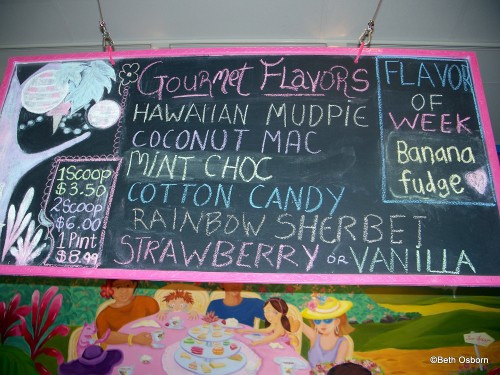 Gourmet Flavors
HAWAIIAN MUDPIE
COCONUT MAC
MINT CHOC
COTTON CANDY
RAINBOW SHERBET
STRAWBERRY or VANILLA
FLAVOR
OF
WEEK
Banana
fudge
1 Scoop
$3.50
2 Scoop
$6.00
1 Pint
$8.99
©Beth Osborn